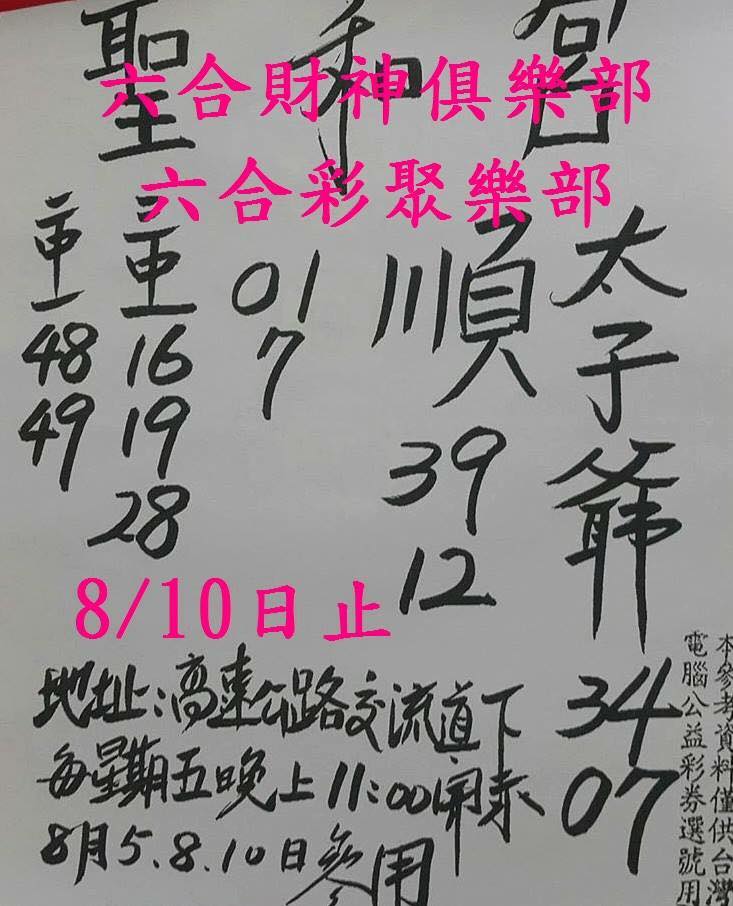 聖和宮
六合財神俱樂部
六合彩聚樂部
太子爺
34
07
順
39
12
01
7
16
19
28
48
49
8/10日止
地址:高速公路交流道下
每星期五晚上11:00開示
8月5.8.10日參用
本參考資料僅供台灣
電腦公益彩券選號用